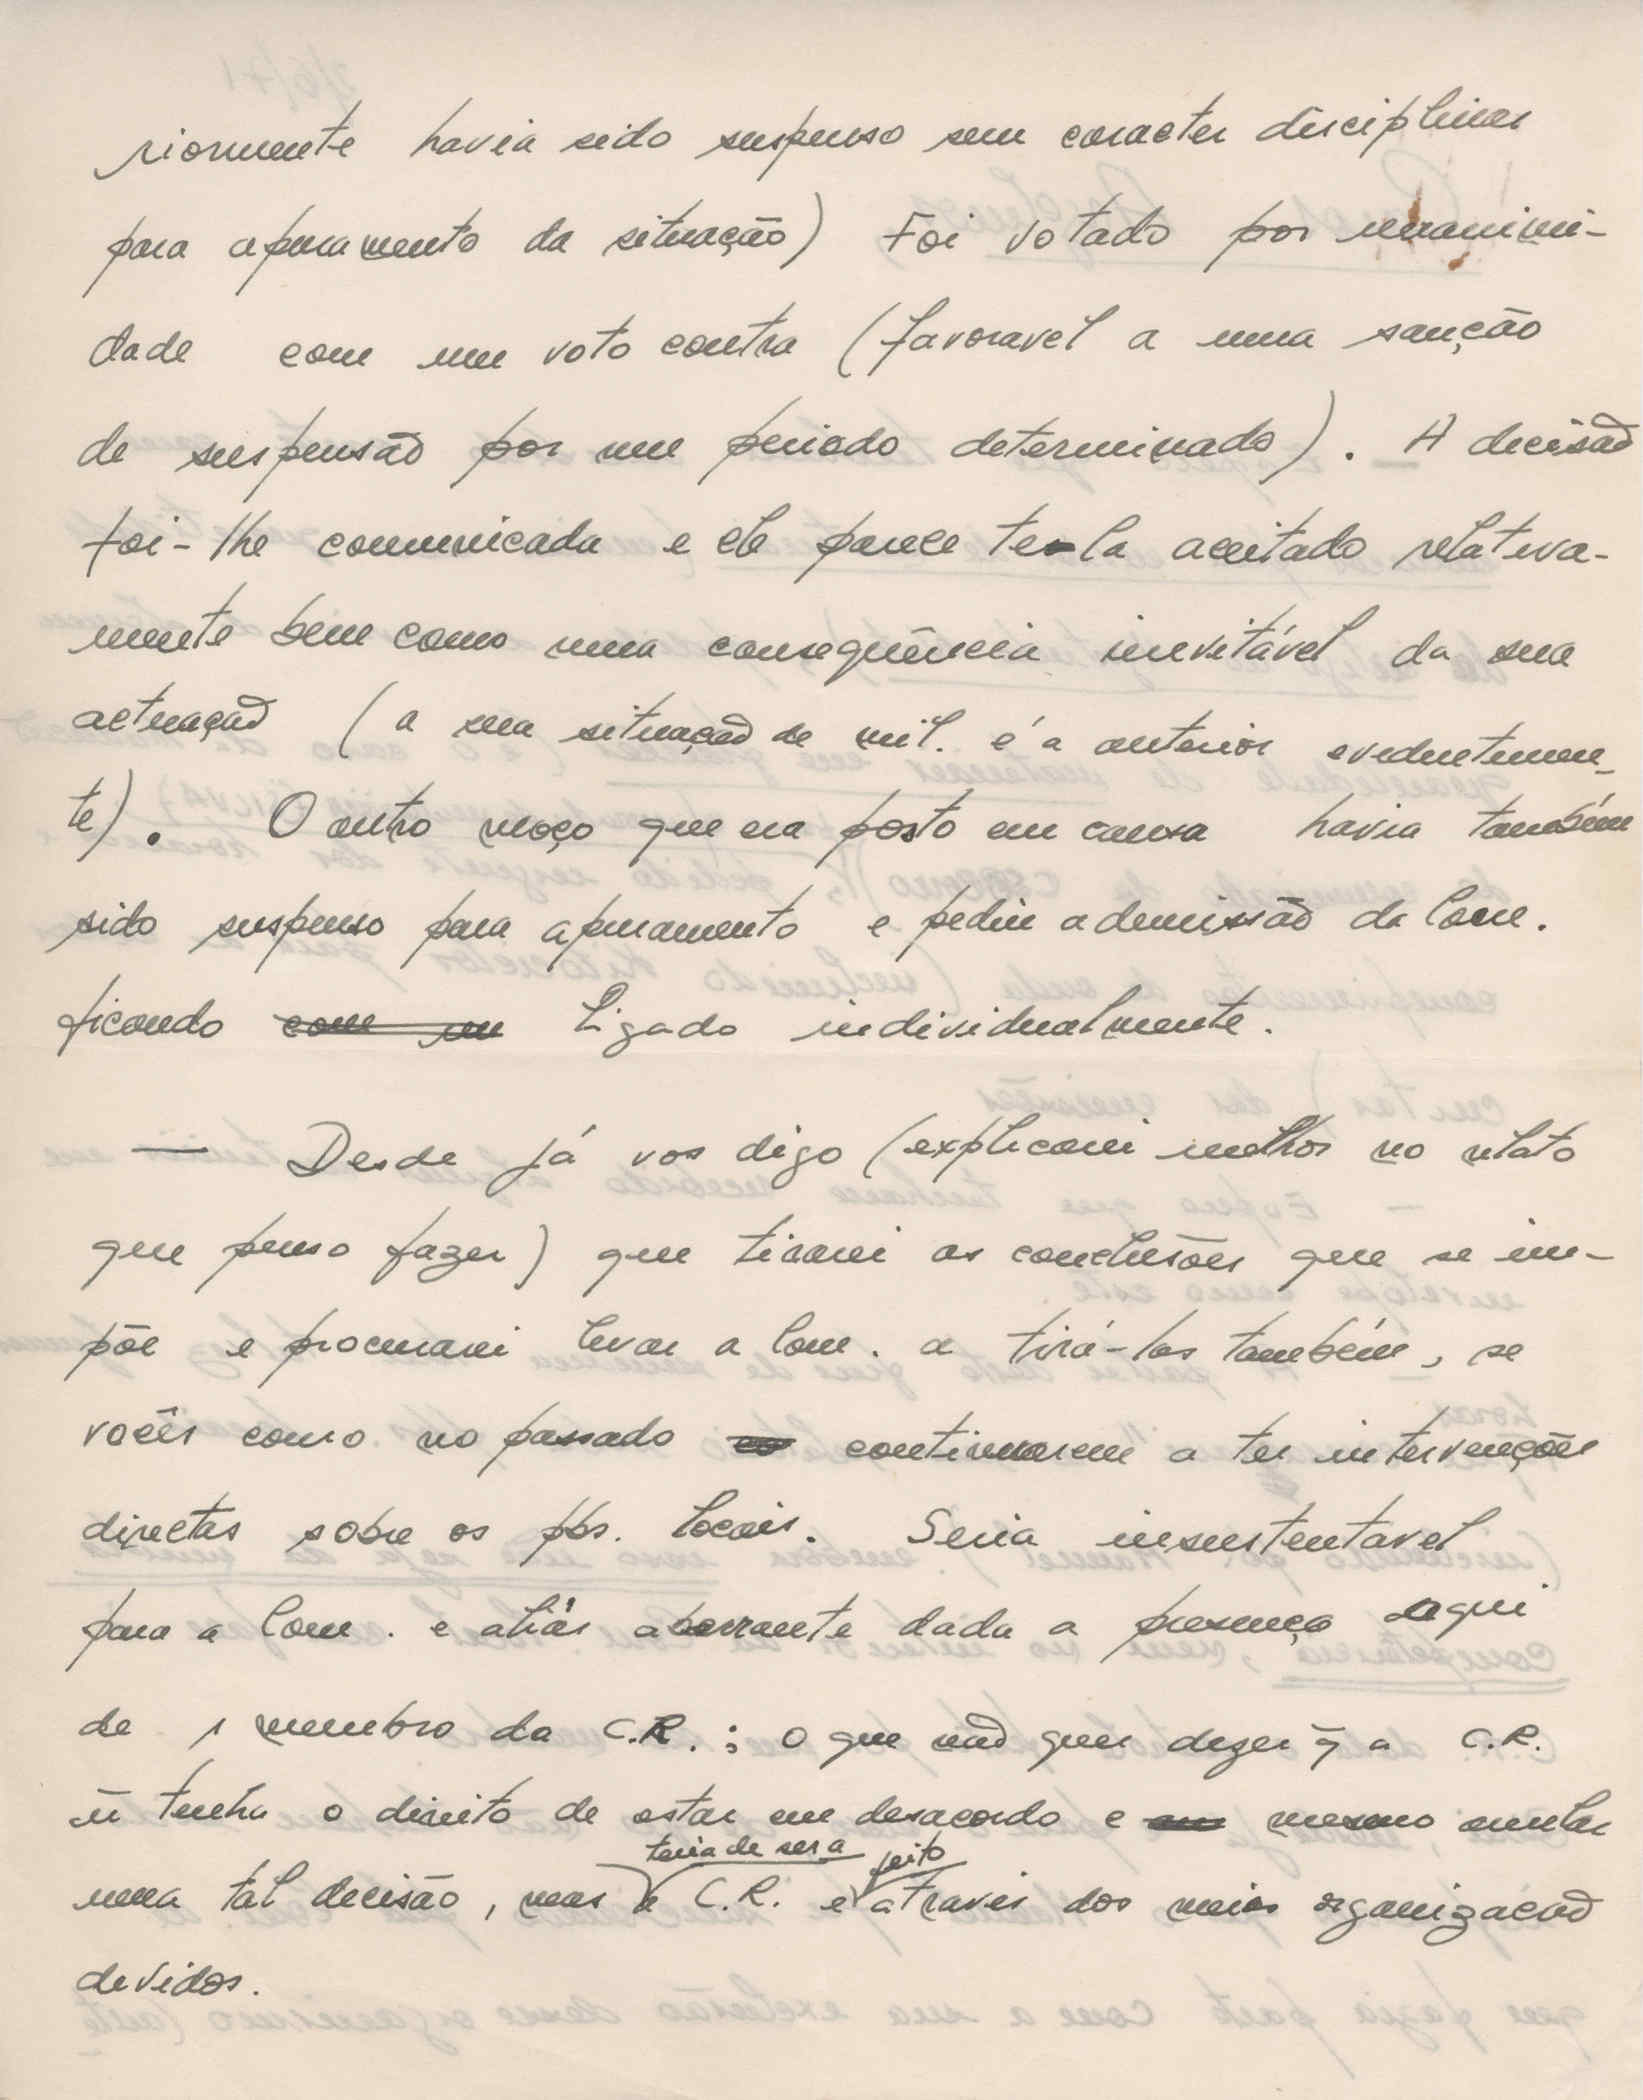 riormente havia sido suspenso sem caracter disciplinar
para apuramento da situação) Foi votado por unanimi-
dade com um voto contra (favoravel a uma sanção
de suspensão por um periodo determinado). A decisão
foi-lhe comunicada e ele parece te-la aceitado relativa-
mente bem como uma consequência inevitável da sua
actuação (a sua situação de mil. é a anterior evidentemen-
te). O outro moço que era posto em causa havia também
sido suspenso para apuramento e pediu a demissão da Com.
ficando com um ligado individualmente.
— Desde já vos digo (explicarei melhor no relato
que penso fazer) que tirarei as conclusões que se im-
põe e procurarei levar a Com. a tirá-las também, se
vocês como no passado continuarem a ter intervenções
directas sobre os pbs. locais. Seria insustentavel
para a Com. e aliás aberrante dada a presença aqui
de 1 membro da C.R.; o que não quer dizer q̄ a C.R.
ñ tenha o direito de estar em desacordo e mesmo anular
teria de ser a feito
uma tal decisão, mas a C.R. e através dos meios organizacão
devidos.